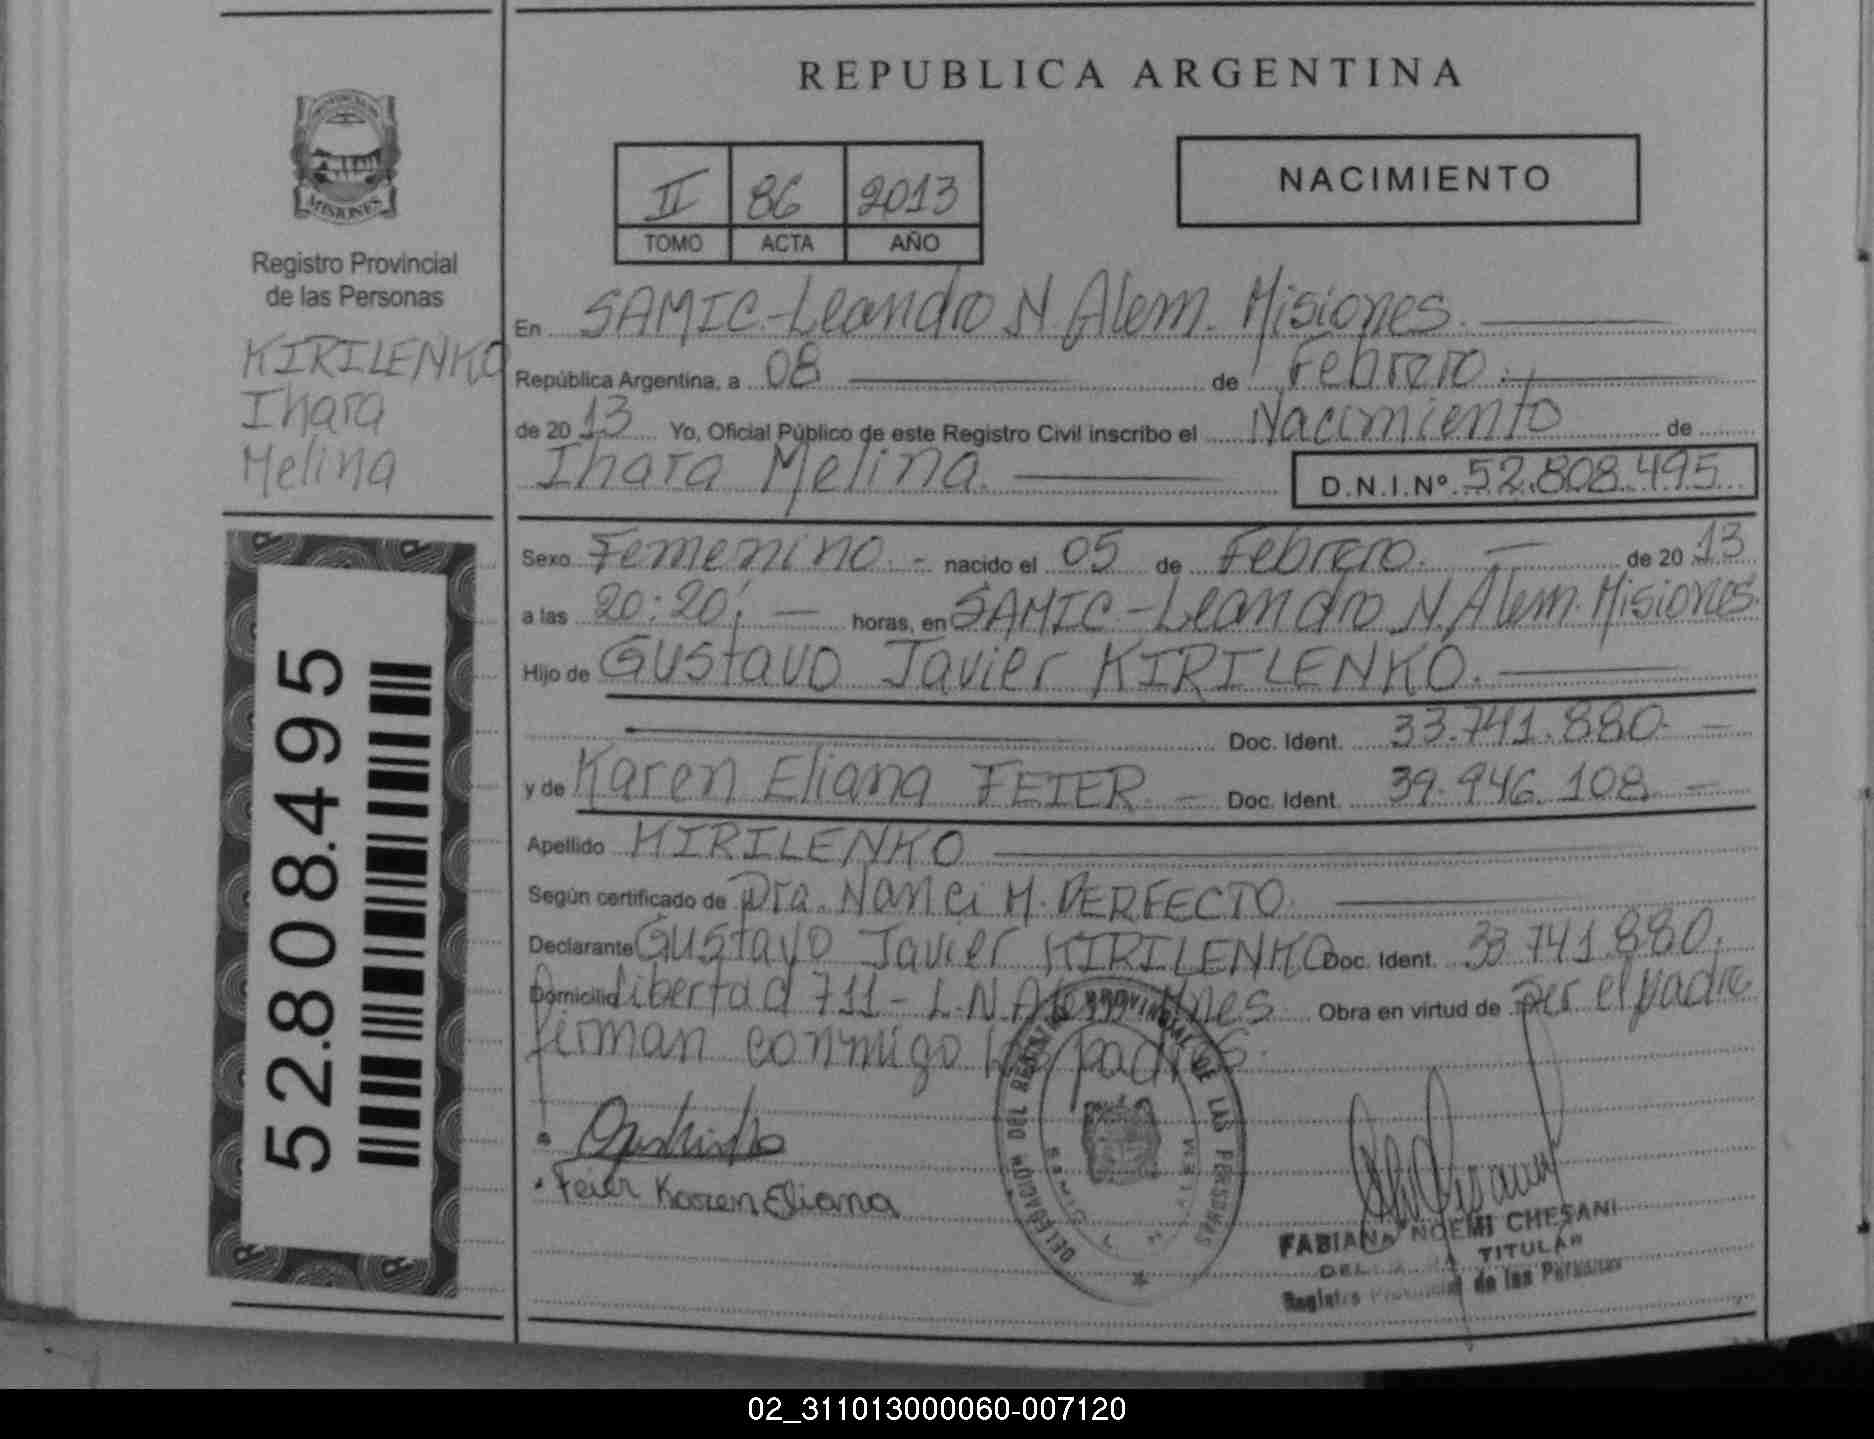 REPUBLICA ARGENTINA
MISIONES
Registro Provincial
de las Personas
KIRILENKO
Ihara
Melina
52.808.495
II 86 2013
TOMO ACTA AÑO
NACIMIENTO
En SAMIC-Leandro N. Alem. Misiones.
República Argentina, a 08 de Febrero.
de 20 13 Yo, Oficial Público de este Registro Civil inscribo el Nacimiento de
Ihara Melina. D.N.I.Nº 52.808.495
Sexo Femenino.- nacido el 05 de Febrero. de 20 13
a las 20:20 horas, en SAMIC-Leandro N. Alem. Misiones.
Hijo de Gustavo Javier KIRILENKO.
Doc. Ident. 33.741.880
y de Karen Eliana FEIER. Doc. Ident. 39.946.108
Apellido KIRILENKO
Según certificado de Dra. Nanci M. PERFECTO.
Declarante Gustavo Javier KIRILENKO Doc. Ident. 33.741.880.
Domicilio libertad 711- L.N.Alem Mnes Obra en virtud de ser el padre
firman conmigo los padres.
Feier Karen Eliana
DELEGACION DEL REGISTRO PROVINCIAL DE LAS PERSONAS
FABIANA NOEMI CHESANI
TITULAR
Registro Provincial de las Personas
02_311013000060-007120